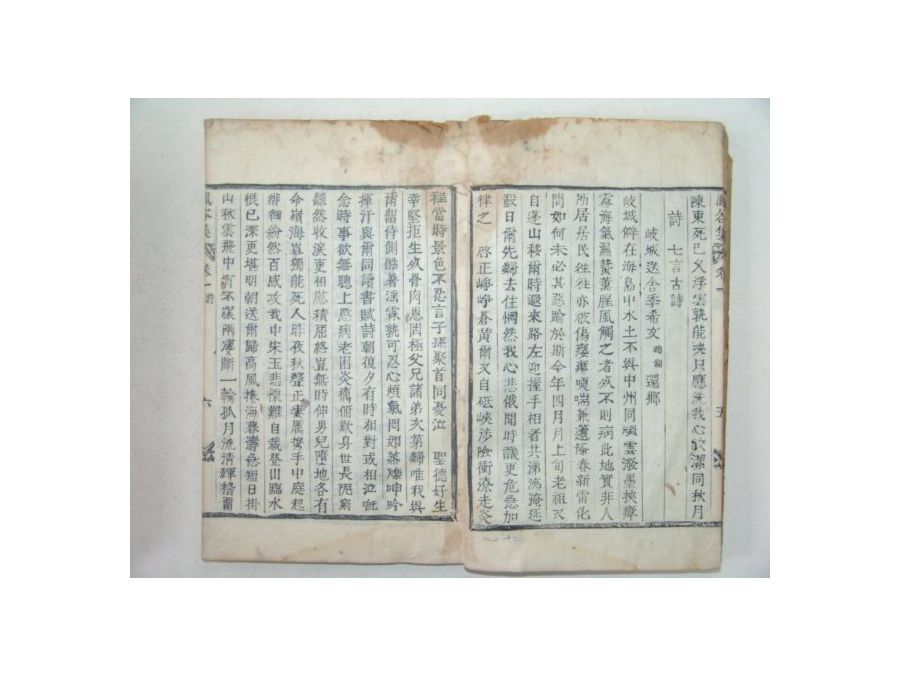 陳東死已久浮雲孰能決只應洗我心皎潔同秋月
詩 七言古詩
岐城送舍季希文 還鄉
岐城僻在海島中水土不與中州同頑雲潑墨挾瘴
霧海氣濕蟄薰腥風觸之者必不則病此地實非人
所居居民徃徃亦
問如何未必其惡踰於斯今年四月月上旬老祖又
自蓬山移爾時退來路左迎握手相看共涕洏淹延
數日爾先歸去住惘然我心悲俄聞時議更危急加
律之 啓正崢嶸蒼黃爾又自砥峽涉險衝潦走炎
程當時景色不忍言子孫聚首同憂泣 聖德好生
幸堅拒生必骨肉恩因極父兄諸弟次第歸唯我與
爾留侍側酷暑 孰可忍心煩氣悶如蒸爍呻吟
揮汗與爾同讀書賦詩朝復夕有時相對或相泣
念時事欲無聽上愍病老困炎瘴俯歎身世長阨窮
飜然收淚更相慰積屈終豈無時伸男兒墮地各有
命嶺海豈獨能死人昨夜秋聲正 手中庭起
徘徊紛然百感攻我中宋玉悲懷難自裁登山臨水
根已深更堪明朝送爾歸高風捲海暮濤急短日掛
山秋雲飛中宵不寐兩 斷一輪孤月流清輝稽留
卷一
五
六